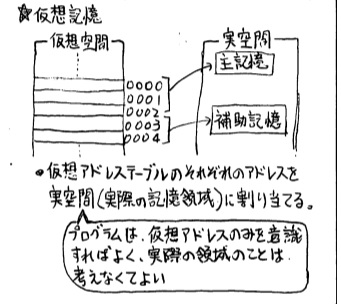 ☆仮想記憶
仮想空間
実空間
0000
0001
0002
0003
0004
主記憶
補助記憶
•仮想アドレステーブルのそれぞれのアドレスを
実空間(実際の記憶領域)に割り当てる。
プログラムは、仮想アドレスのみを意識
すればよく、実際の領域のことは
考えなくてよい